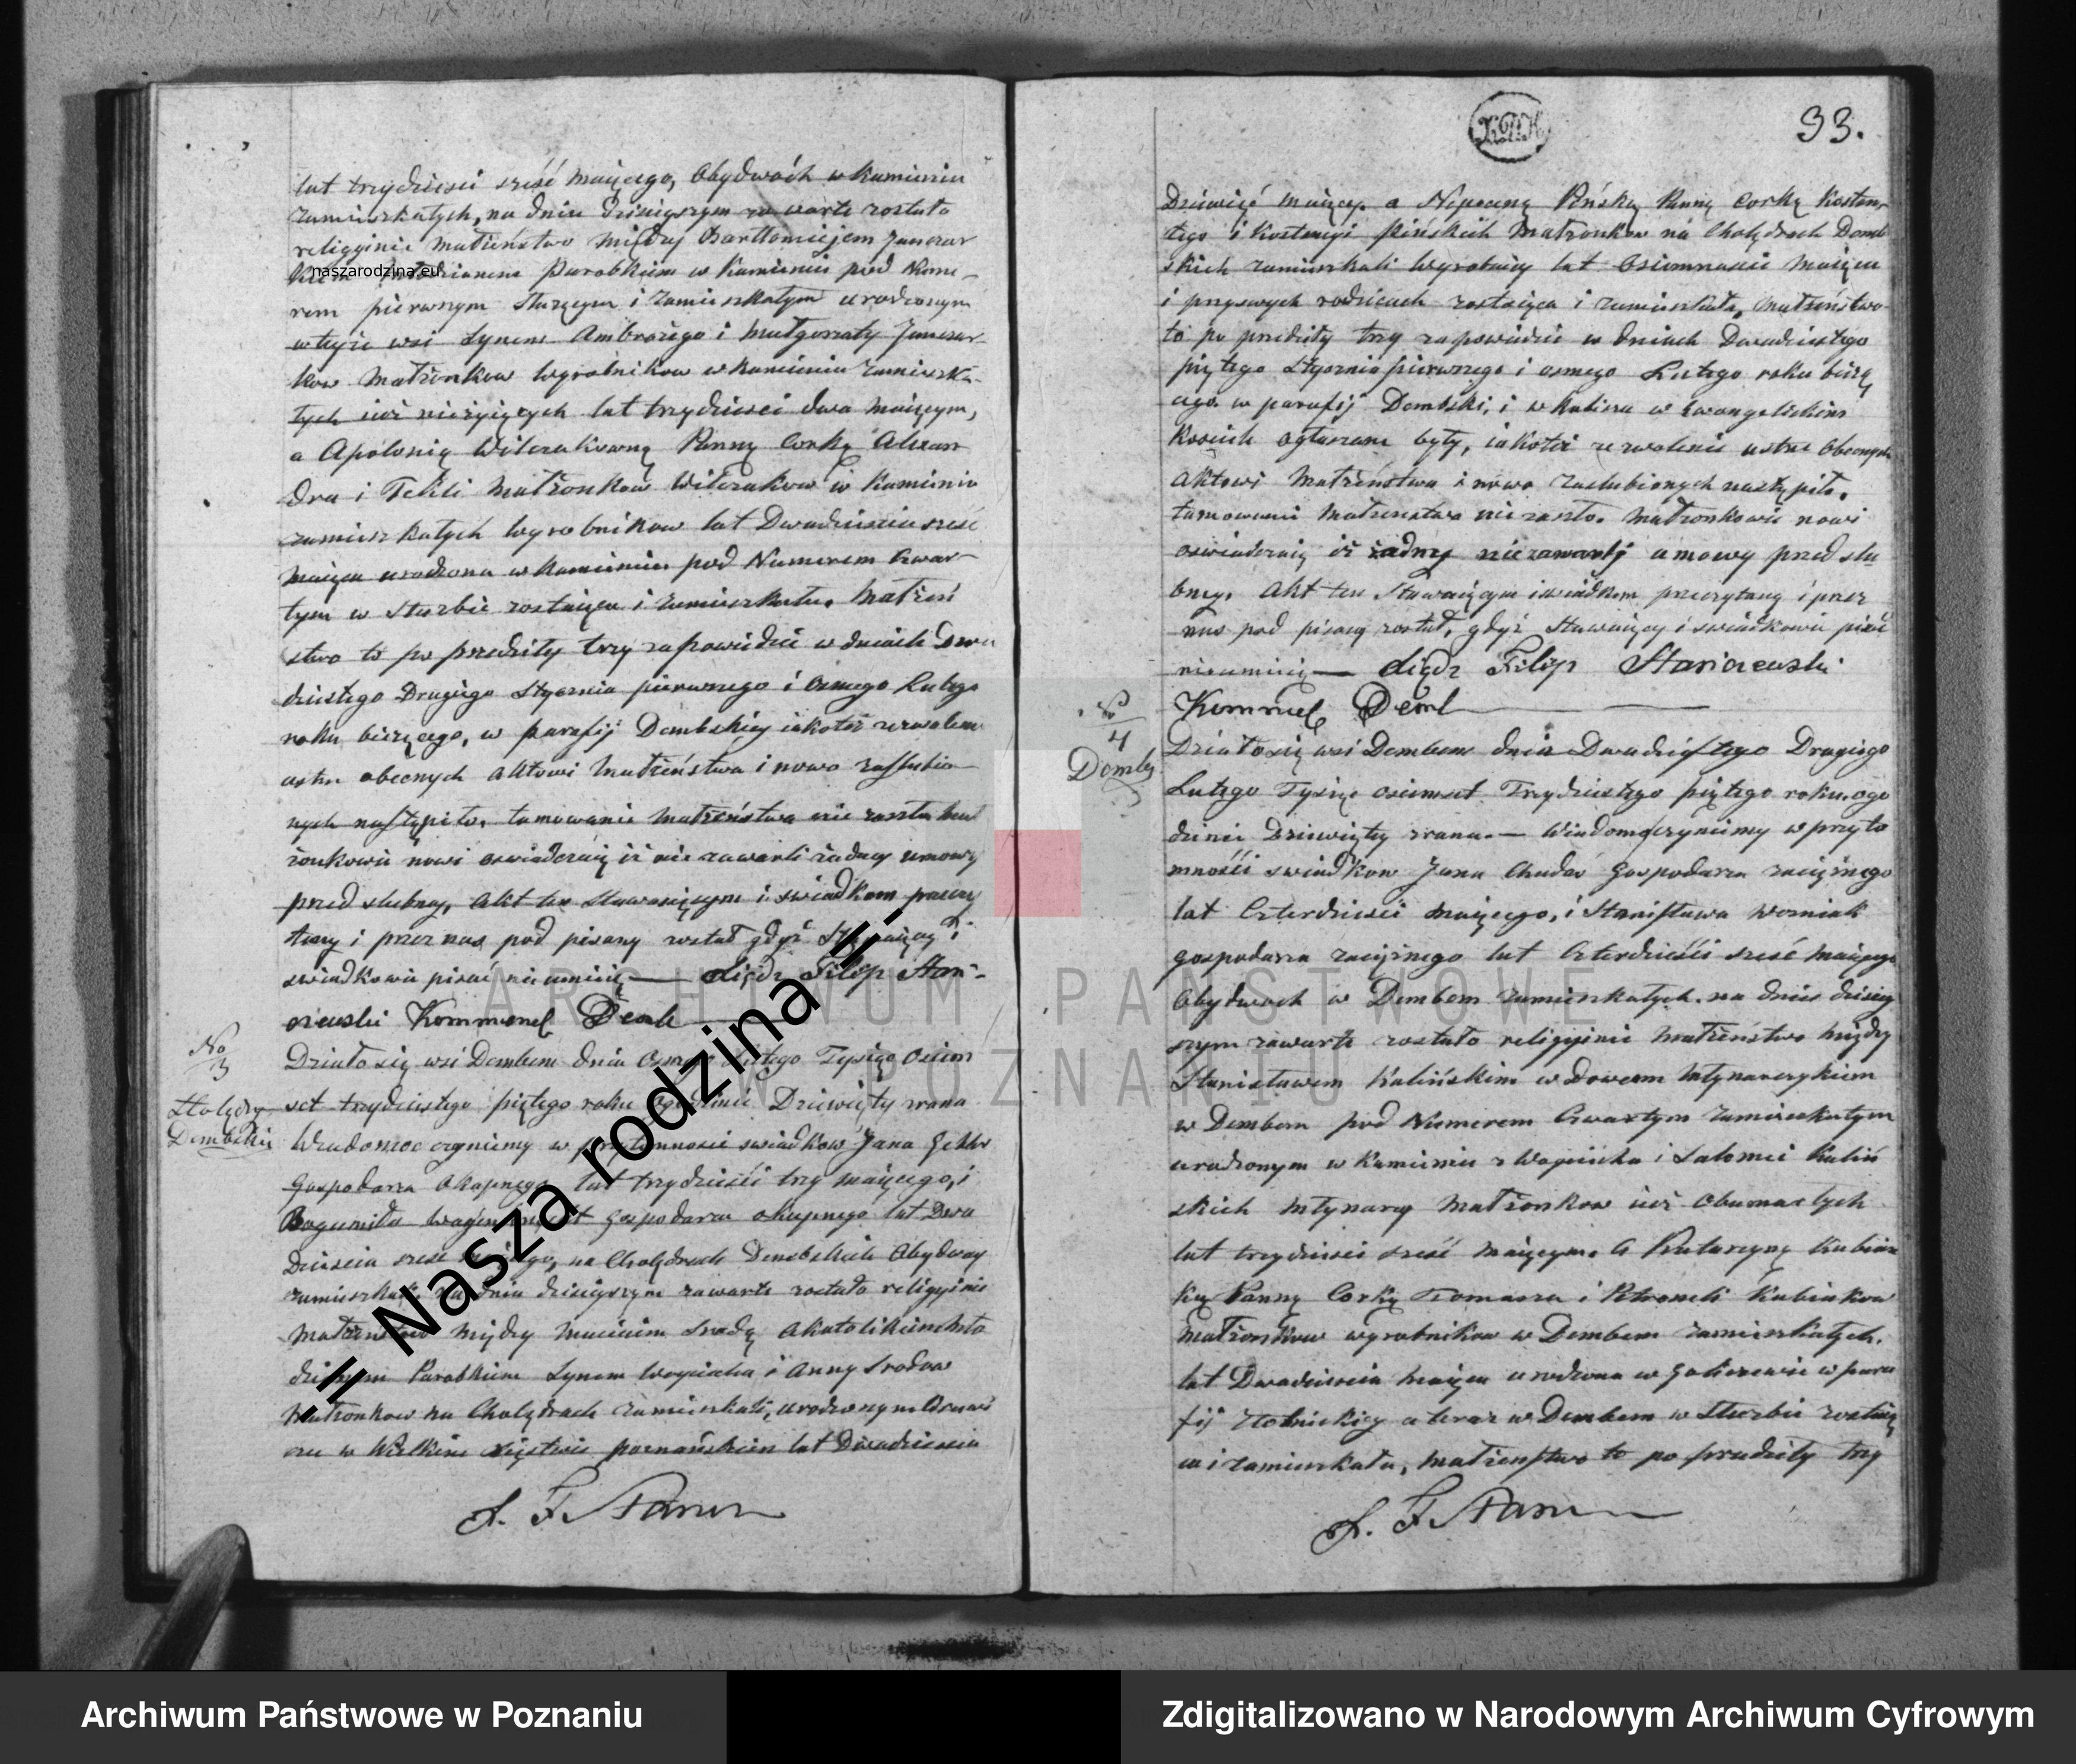 lat trzydziesci sześć maiącego, obydwóch w Kamieniu
zamieszkałych, na dniu dzisieyszym zawarte zostało
religijnie małżeństwo między Bartłomiejem Janczar
kiem Młodzianem Parobkiem w Kamieniu pod Nume-
naszarodzina.eu
rem pierwszym służącym i zamieszkałym urodzonym
w teyże wsi synem Ambrożego i Małgorzaty Janczar-
kow Małżonkow wyrobnikow w Kamieniu zamieszka-
łych iuż nieżyiących lat trzydziesci dwa maiącym,
a Apolonią Wilczakowną Panną Corką Alexan
dra i Tekli Małżonkow Wilczakow w Kamieniu
zamieszkałych wyrobnikow lat Dwadziescia sześć
maiąca urodzona w Kamieniu pod Numerem Czwar-
tym w służbie zostaiąca i zamieszkała. Małżeń
stwo to po przedziły trzy zapowiedzi w dniach Dwu
dziestego Drugiego Stycznia pierwszego i osmego Lutego
roku bieżącego, w parafij Dembskiey iakoteż zezwolenie
ustne obecnych Aktowi Małżeństwa i nowo zaslubio-
nych nastąpiło, tamowanie Małżeństwa nie zaszło Mał
żonkowie nowi oswiadczaią iż nie zawarli żadney umowy
przed slubney, Akt ten Stawaiącym i swiadkom przeczy
tany i przez nas pod pisany został gdyż Stawaiący i
swiadkowie pisać nie umieią — Xiądz Filip Stani-
szewski Kommend Demb
No 3
Holędry
Dembskie
Działo się wsi Dembem dnia Osmego Lutego Tysiąc Osiem
set trzydziestego piątego roku o godzinie Dziewiąty zrana
Wiadomo czynimy w przytomności swiadkow Jana
Gospodarza okupnego lat trzydzieści trzy maiącego, i
Bogumiła gospodarza okupnego lat Dwa
dziescia sześć maiącego, na Cholędrach Dembskich Obydway
zamieszkali, na dniu dzisieyszym zawarte zostało religijnie
Małżeństwo między Maciejem Srodą Mło
dzianem Parobkiem Synem Woyciecha i Anny Srodow
Małżonkow na Cholędrach zamieszkali, urodzonym
w Wielkim Xięstwie poznańskim lat Dwadziescia
X. F. Stanisz
33.
Dziewięć maiący. a Pińską Panną Corką Konstan-
tego i Konstancyi Pińskich Małżonkow na Cholędrach Demb
skich zamieszkali Wyrobnicy lat Osiemnascie maiąca
i przyswych rodzicach zostaiąca i zamieszkała, Małżeństwo
to po przedziły trzy zapowiedzie w dniach Dwudziestego
piątego Stycznia pierwszego i osmego Lutego roku bieżą
cego w parafij Dembski, i w Kaliszu w Ewangelickim
Kosciele ogłaszane były, iakoteż zezwolenie ustne obecnych
Aktowi Małżeństwa i nowo Zaslubionych nastąpiło,
tamowanie Małżeństwa nie zaszło. Małżonkowie nowi
oswiadczaią iż żadney niezawarli umowy przed slu
bney. Akt ten Stawaiącym i swiadkom przeczytany i przez
nas pod pisany został, gdyż Stawaiący i swiadkowie pisać
nieumieią — Xiądz Filip Staniszewski
Kommend Demb
No 4
Dembe
Działo się wsi Dembem dnia Dwudziestego Drugiego
Lutego Tysiąc osiemset Trzydziestego piątego roku, ogo
dzinie Dziewiąty zrana. — Wiadomo czynimy w przyto
mności swiadkow Jana Chudaś Gospodarza zaciężnego
lat Czterdzieści maiącego, i Stanisława Wozniak
gospodarza zaciężnego lat Czterdzieści sześć maiącego
Obydwoch w Dembem zamieszkałych. na dniu dzisiey
szym zawarte zostało religijnie Małżeństwo między
Stanisławem Kalińskim wdowcem Młynarczykiem
w Dembem pod Numerem Czwartym zamieszkałym
urodzonym w Kamieniu z Woyciecha i Salomei Kaliń
skich Młynarzy Małżonkow iuż obumarłych
lat trzydziesci sześć maiącym. A Katarzyną Kubiak
ką Panną Corką Tomasza i Petroneli Kubiakow
Małżonkow wyrobnikow w Dembem zamieszkałych.
lat Dwadziescia maiąca urodzona w w para
fij teraz w Dembem w Służbie zostaią
ca i zamieszkała, Małżeństwo to po przedziły trzy
X. F. Stanisz
.:= Nasza rodzina =:.
ARCHIWUM PAŃSTWOWE
W POZNANIU
Archiwum Państwowe w Poznaniu
Zdigitalizowano w Narodowym Archiwum Cyfrowym